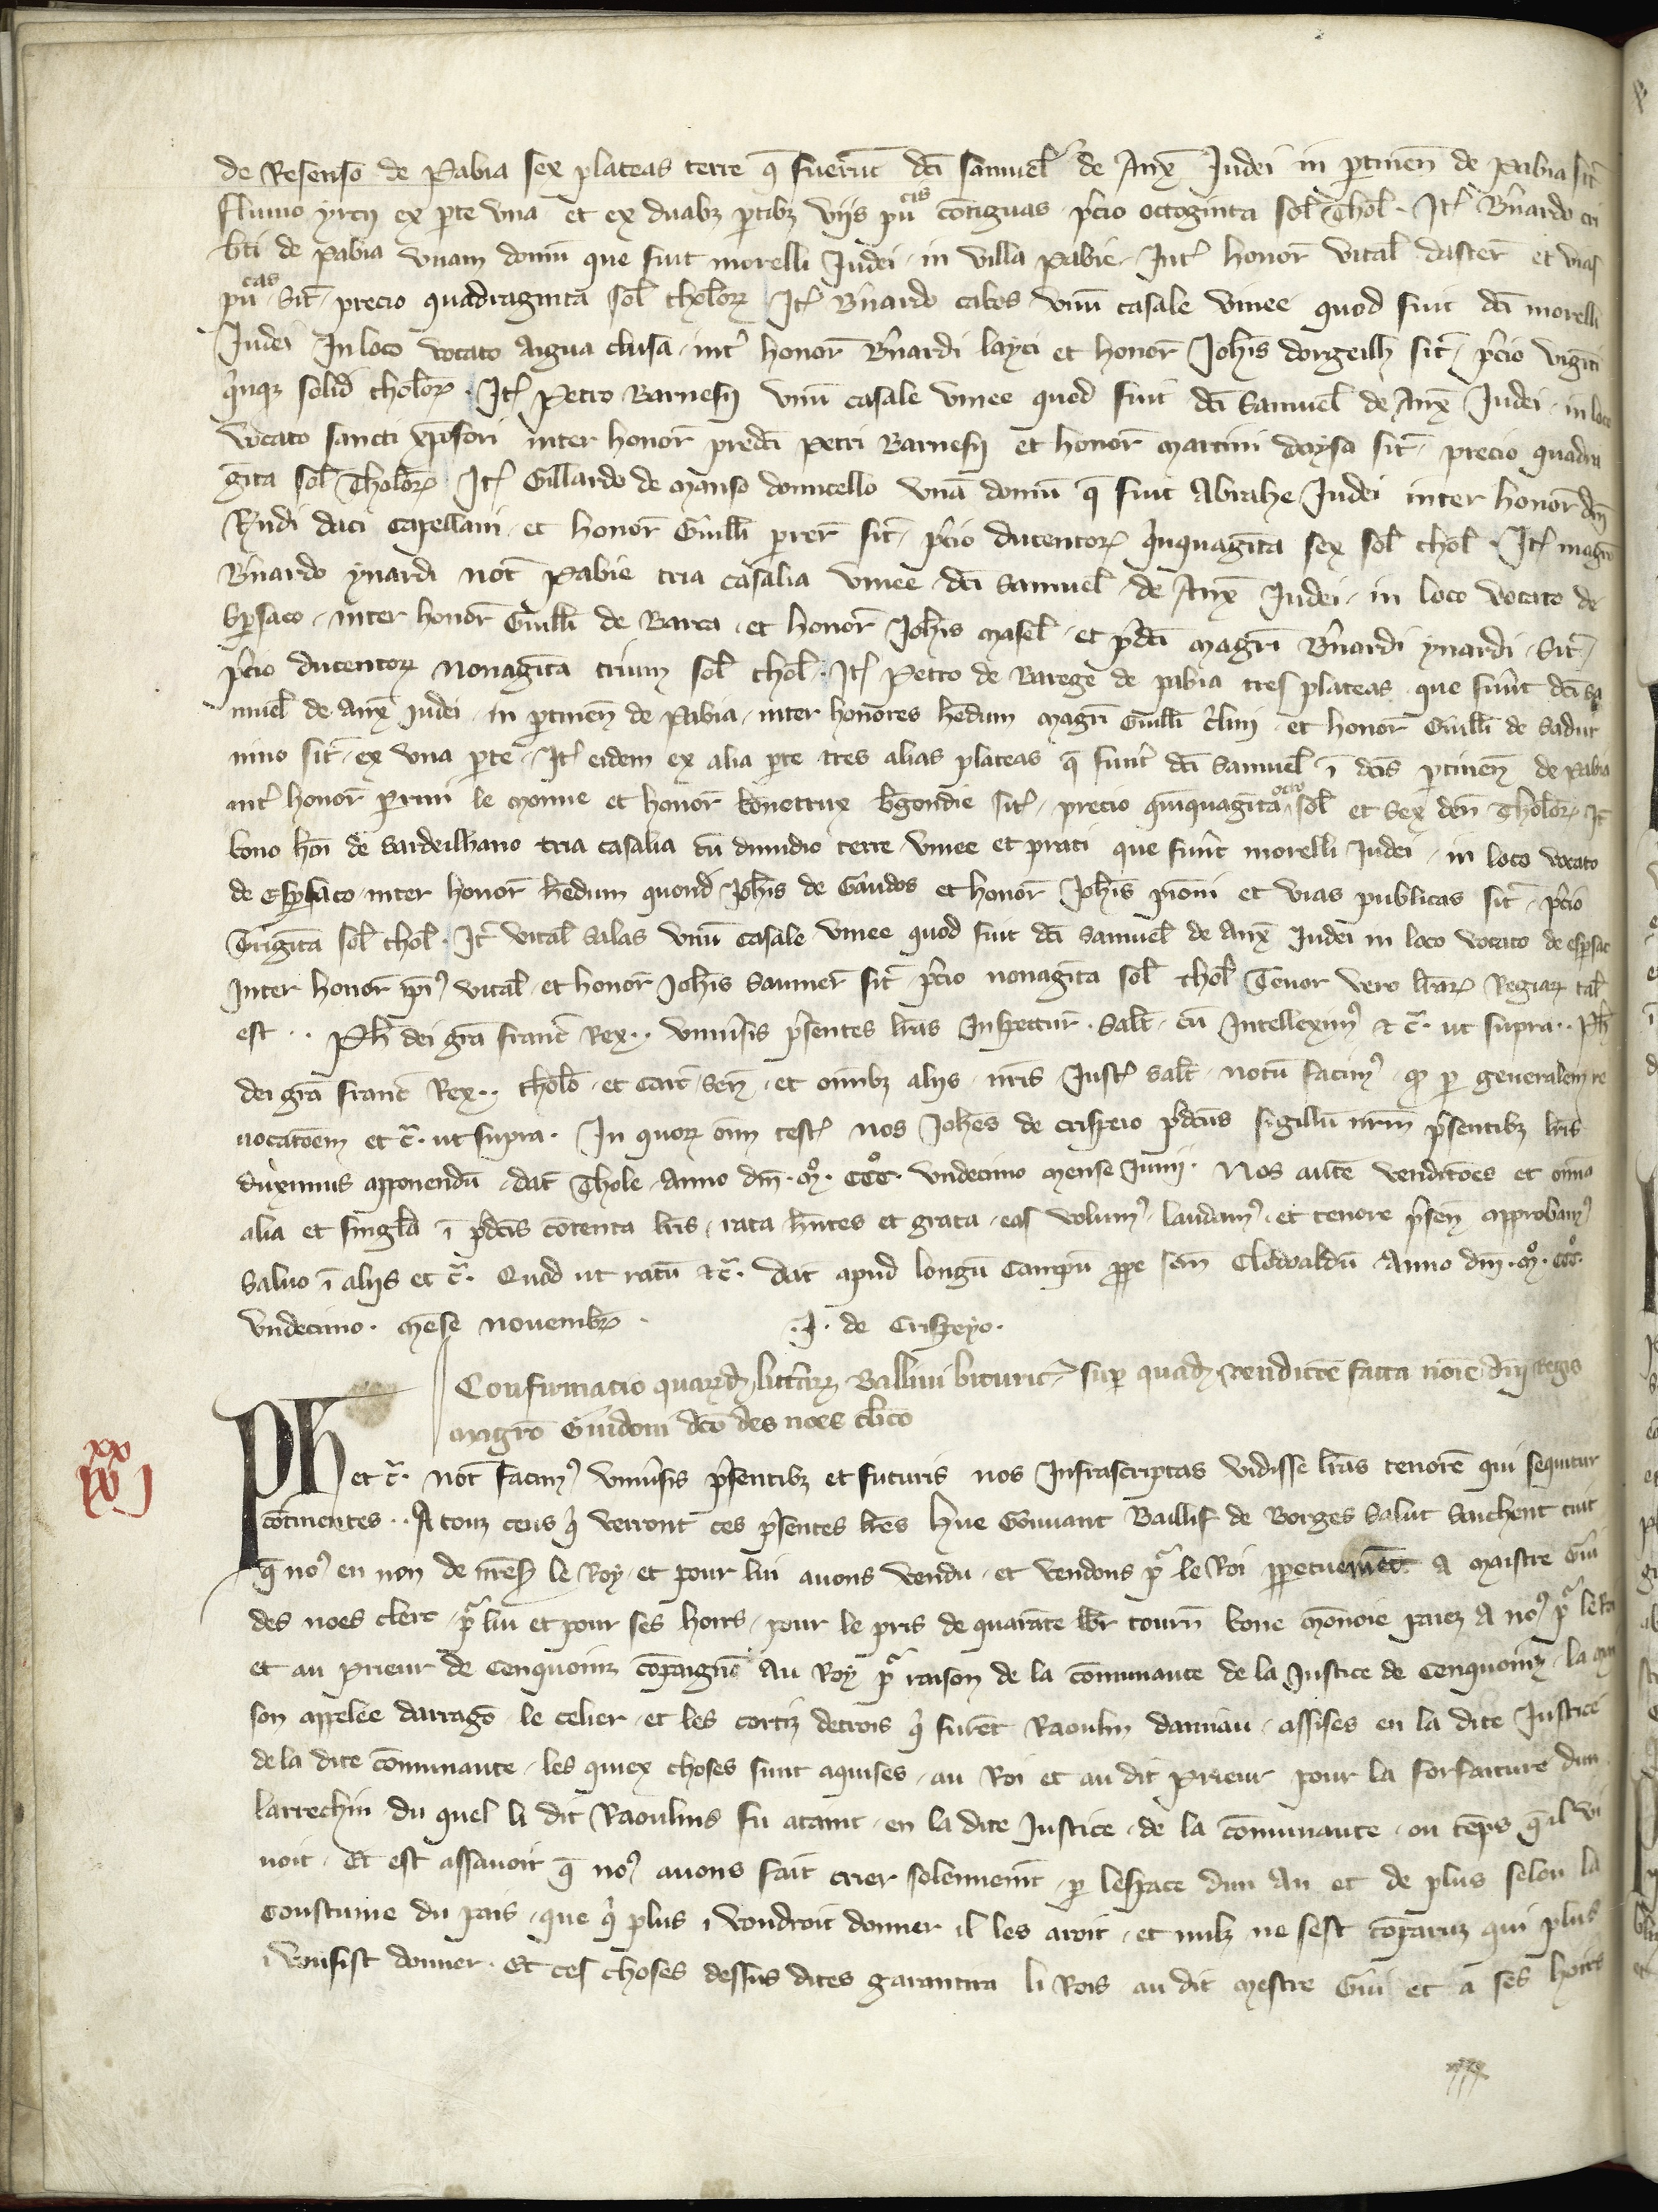 de Resenso de Pabia sex plateas terre q̄ fuerūt dc̄i samuel̄ de Anx̄ Judei in ꝑtineñ de Pabia sit̄
fluuio yrcij ex ꝑte vna et ex duabꝫ ꝑtibꝫ viis pu᷒cis cōtiguas p̄cio octoginta sol̄ Thol̄ . Jt̄ B̄nardo cri
bti de Pabia vnam domū que fuit morelli Judei in villa Pabie Int̄ honor̄ vital̄ daster̄ et vias
pucas sit̄ precio quadraginta sol̄ tholoꝝ Jt̄ B̄nardo cabes vnū casale vinee quod fuit dc̄i morelli
Judei In loco vocato Aigua clusa int̄ honor̄ B̄nardi layci et honor̄ Joh̄is dorgeilh sit̄ p̄cio viginti
q̄nqꝫ solid tholoꝝ . Jt̄ Petro Barnesij vnū casale vinee quod fuit dc̄i Samuel̄ de Anx̄ Judei in loco
vocato sancti xp̄ofori inter honor̄ predc̄i Petri Barnesij et honor̄ martini doysa sit̄ precio quadra
gīta sol̄ Tholoꝝ Jt̄ Gillardo de Manso domicello vnā domū q̄ fuit Abrahe Judei inter honor̄ dn̄i
Rn̄di daci Capellani et honor̄ Guill̄i ꝑrer̄ sit̄ p̄cio ducentoꝝ q̄nquagīta sex sol̄ thol̄ . Jt̄ magr̄o
B̄nardo ynardi not̄ Pabie tria casalia vinee dc̄i Samuel̄ de Anx̄ Judei in loco vocato de
sꝑsaco inter honor̄ Guill̄i de Barca et honor̄ Joh̄is masel̄ et p̄dc̄i magr̄i B̄nardi ynardi sit̄
p̄cio ducentoꝝ nonagīta trium sol̄ thol̄ . Jt̄ Petro de Barege de pabia tres plateas que fuer̄t dc̄i sa
muel̄ de Anx̄ Judei in ꝑtineñ de Pabia inter honores h̄edum magr̄i Guill̄i c̄lini et honor̄ Guill̄i de sadur
nino sit̄ ex vna ꝑte . Jt̄ eidem ex alia ꝑte tres alias plateas q̄ fuer̄t dc̄i Samuel̄ ī dc̄is ꝑtineñ de Pabia
int̄ honor̄ ꝑrini le monne et honor̄ bonettux b̄gondie sit̄ precio qīnquagīta octo sol̄ et sex deñ Tholoꝝ Jt̄
bono hōi de Sardeilhano tria casalia cū dimidio terre vinee et prati que fuer̄t morelli Judei in loco vocato
de Esꝑsaco inter honor̄ h̄edum quond̄ Joh̄is de Gaudos et honor̄ Joh̄is pioni et vias publicas sit̄ p̄cio
Trigīta sol̄ thol̄ . Jt̄ vital̄ Salas vnū casale vinee quod fuit dc̄i Samuel̄ de Anx̄ Judei in loco vocato de esꝑsac
Inter honor̄ ip̄iꝰ vital̄ et honor̄ Joh̄is Saumer̄ sit̄ p̄cio nonagīta sol̄ thol̄ Tenor vero lr̄aꝝ Regiaꝝ tal̄
est .. Ph̄ dei gr̄a franc̄ Rex .. vniu̇sis p̄sentes lr̄as Inspectur̄ . Salt̄ . cū Intelleximꝰ ⁊ c̄ . ut supra .. Ph̄
dei gr̄a franc̄ Rex .. tholō et Carc̄ señ et omībꝫ aliis nr̄is Just̄ salt̄ . notū facimꝰ qd̄ ꝑ generalem re
uocatōem et c̄ . ut supra . In quoꝝ om̄ test̄ nos Joh̄es de crispeio p̄dc̄us sigillū nr̄m p̄sentibꝫ lr̄is
duximus apponendū dat̄ Thole Anno dn̄i . Mo . CCCo . vndecimo mense Junij . Nos aūtē venditōes et omīa
alia et singl̄a ī p̄dc̄is cōtenta lr̄is rata h̄ntes et grata eas volumꝰ laudamꝰ et tenore p̄señ approbamꝰ
saluo ī aliis et c̄ . Quod ut ratū ⁊ c̄ . dat̄ apud longū Campū ꝓpe sc̄m Clodoaldū Anno dn̄i . Mo . CCCo .
vndecimo . mēse nouembꝝ . J . de Crispeyo .
Confirmatio quaꝝdā litt̄aꝝ Balliui bituric̄ suꝑ quadā vendictōe facta nōīe dn̄i Regis
magr̄o Guidoni dc̄o des noes cl̄ico
CXX IX
Ph̄ et c̄ . not̄ facimꝰ vniu̇sis p̄sentibꝫ et futuris nos Infrascriptas vidisse lr̄as tenorē qui sequitur
cōtinentes .. A touz ceus q̄ verront ces p̄sentes lr̄es Hue Gouuant Baillif de Borges salut Saichent tuit
q̄ noꝰ en non de nr̄e sꝰ le Roy et pour lui auons vendu et vendons pͬ le Roi ꝑpetuemēt a maistre Gui
des noes clerc pͬ lui et pour ses hoirs pour le pris de quarāte lbr̄ tourn̄ bone mōnoie paiez a noꝰ pͬ le Roi
et au prieur de Cenquoinz cōpaignō au Roy pͬ raison de la cōmunaute de la Justice de Cenquoinz la mai
son appelee darragō le celier et les cortiz detrois q̄ furēt Raoulin damiau assises en la dite Justice
de la dite cōmunaute les quiex choses sunt aquises au Roi et au dit prieur pour la forfaiture dun
larrechin du quel li dit Raoulins fu ataint en la dite Justice de la cōmunaute ou tēps q̄ il vi
uoit . Et est assauoir q̄ noꝰ auons fait crier solennemēt ꝑ lespace dun an et de plus selon la
Coustume du pais que q̄ plus i voudroit donner il les aroit et nulz ne sest cōparuz qui plus
i vousist donner . Et ces choses dessus dites garantira li Rois au dit Mestre Gui et a ses hoirs